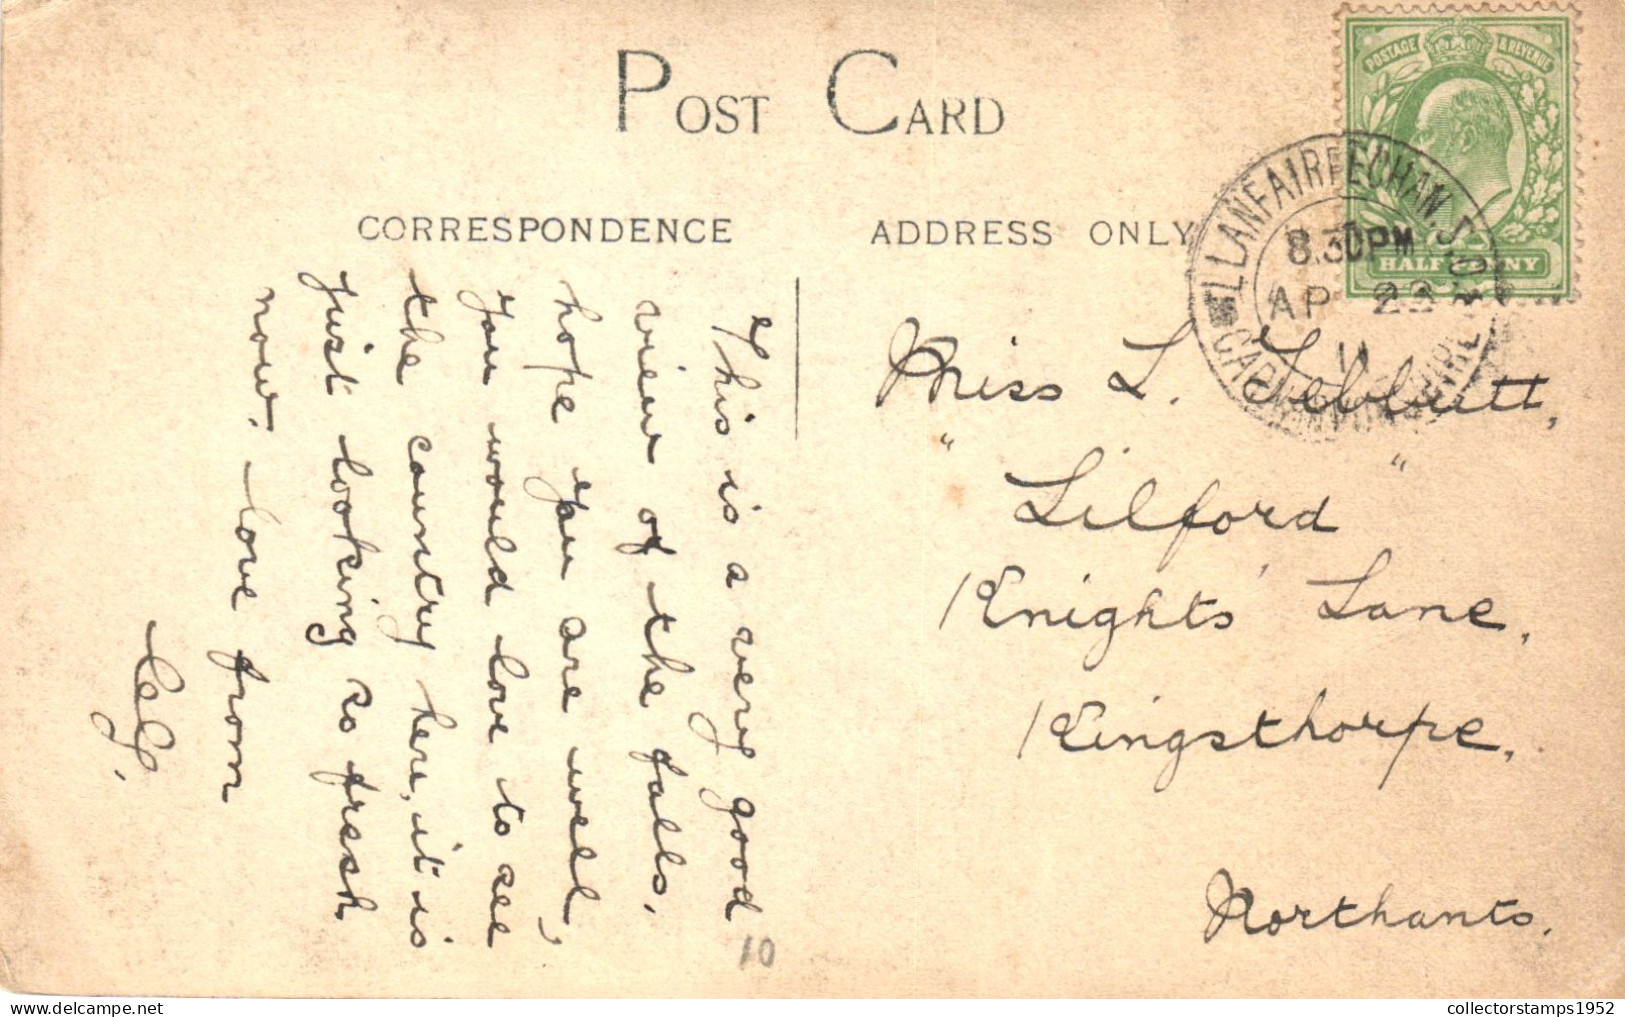 POST CARD
CORRESPONDENCE
ADDRESS ONLY
POSTAGE & REVENUE
HALF PENNY
LLANFAIRFECHAN. S.O
8.30PM
AP 22
11
This is a very good
view of the falls.
hope you are well,
you would love to see
the country here, it is
just looking so fresh
now. love from
Miss L. Tebbutt,
" Lilford "
Knights' Lane,
Kingsthorpe.
Northants.
10
collectorstamps1952